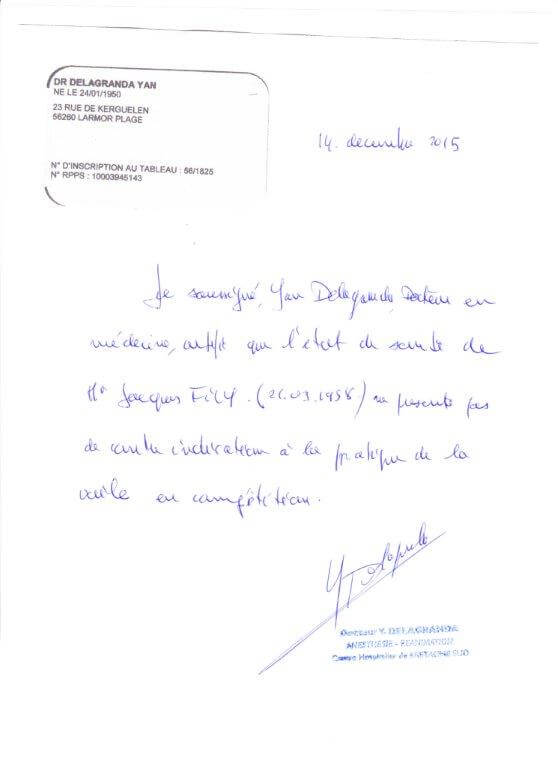 DR DELAGRANDA YAN
NE LE 24/01/1950
23 RUE DE KERGUELEN
56260 LARMOR PLAGE
N° D'INSCRIPTION AU TABLEAU : 56/1825
N° RPPS : 10003945143
14. decembre 2015
Je soussigné, Yan Delagranda, Docteur en
médecine, certifie que l'état de santé de
Mr Jacques FILY. ( .03.1958) ne presente pas
de contre indication à la pratique de la
voile en compétition.
Docteur Y. DELAGRANDA
ANESTHESIE - REANIMATION
Centre Hospitalier de BRETAGNE SUD